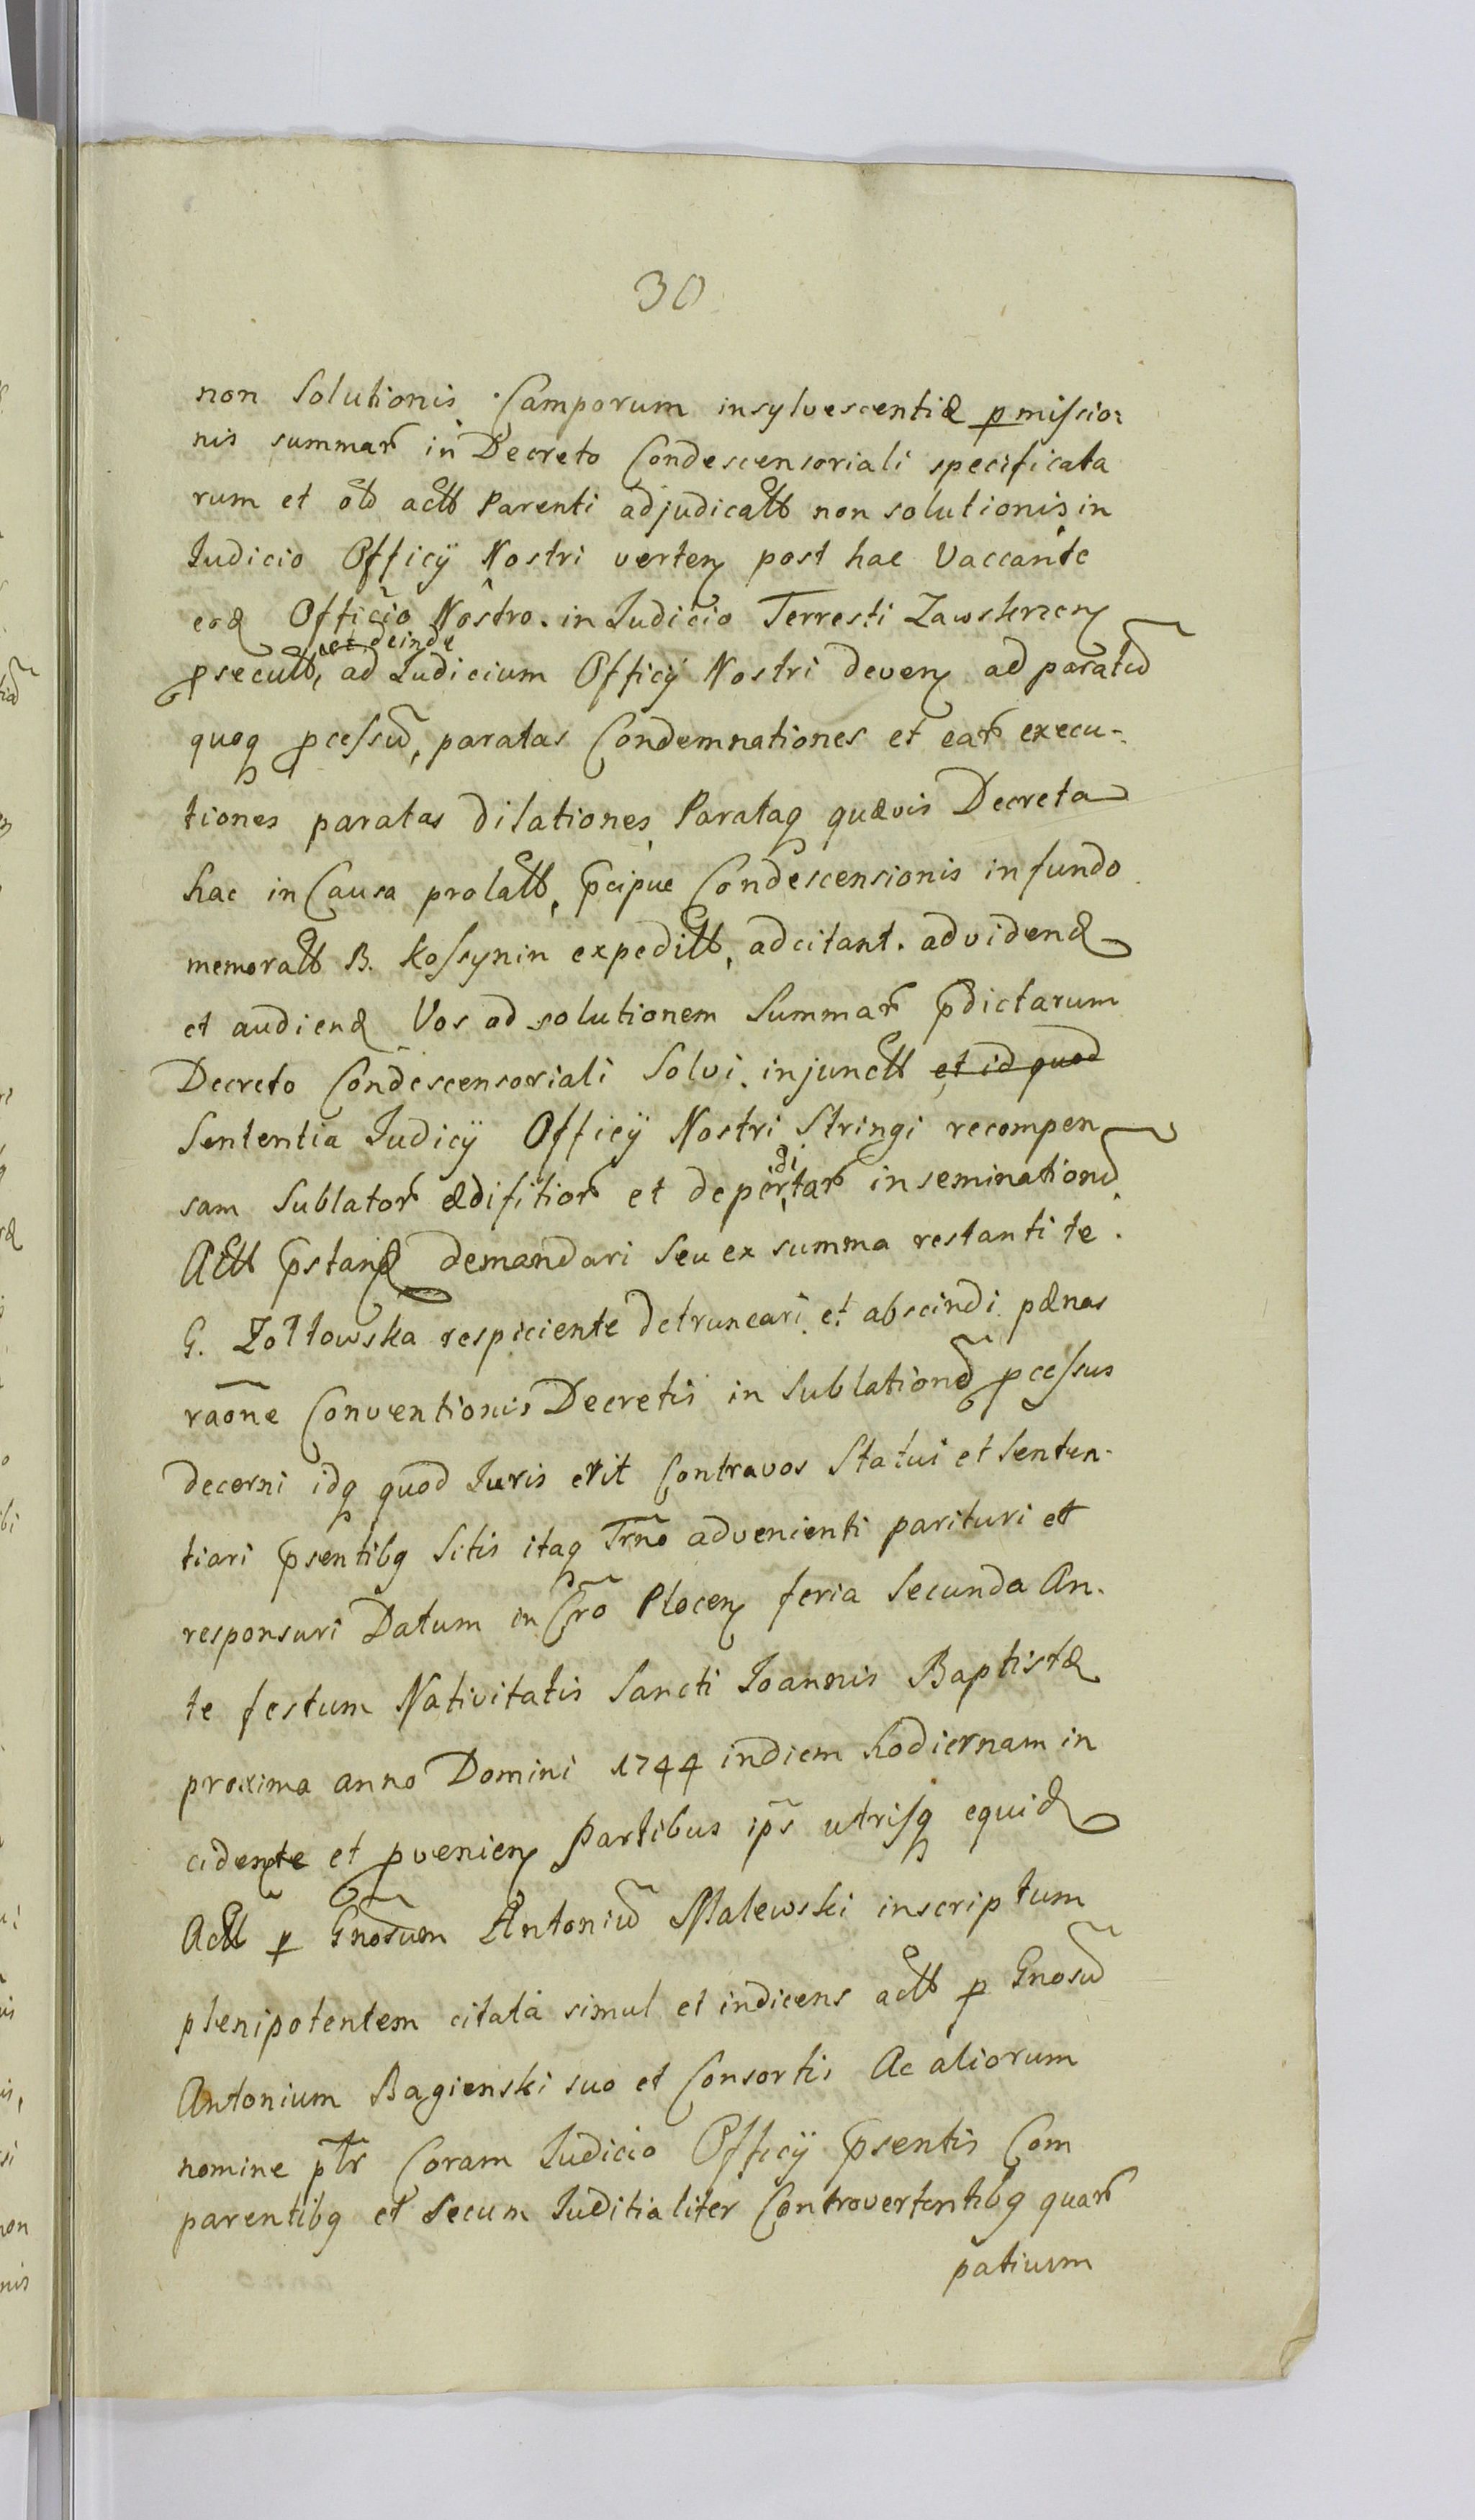 30
non Solutionis Camporum insylvescentiæ pmissio:
nis summar in Decreto Condescensoriali specificata
rum et ob actt Parenti adjudicatt non solutionis in
Iudicio Officÿ Nostri verten post hac Vaccante
eod Officio Nostro. in Iudicio Terresti Zawskrzen
ac deinde
psecutt, ad Iudicium Officÿ Nostri deven ad paratũ
quoq pcessũ, paratas Condemnationes et ear execu-
tiones paratas dilationes Parataq quævis Decreta
hac in Causa prolatt, pcipue Condescensionis in fundo
memoratt B. Kossynin expeditt, adcitant. ad vidend
et audiend Vos ad solutionem Summar pdictarum
Decreto Condescensoriali Solvi injunctt et id quod
Sententia Iudicÿ Officÿ Nostri Stringi recompen
sam Sublator ædifitior et deperditar inseminationũ
Actt pstand demandari seu ex summa restanti te
G. Zołtowska respiciente detruncari et abscindi pænas
raõne Conventionis Decretis in Sublationẽ pcessus
decerni idq quod Iuris erit Contravos Statui et Senten-
tiari psentibq Sitis itaq Trño advenienti parituri et
responsuri Datum in Cro Plocen feria Secunda An-
te festum Nativitatis Sancti Ioannis Baptistæ
proxima anno Domini 1744 indiem hodiernam in
cidente et pvenien Partibus ips utrisq equid
Actt p Gnosum Antoniũ Malewski inscriptum
plenipotentem citata simul et indicens actt p Gnosũ
Antonium Bagienski suo et Consortis Ac aliorum
nomine ptr Coram Iudicio Officÿ psentis Com
parentibq et Secum Iuditialiter Controvertentibq quar
patium